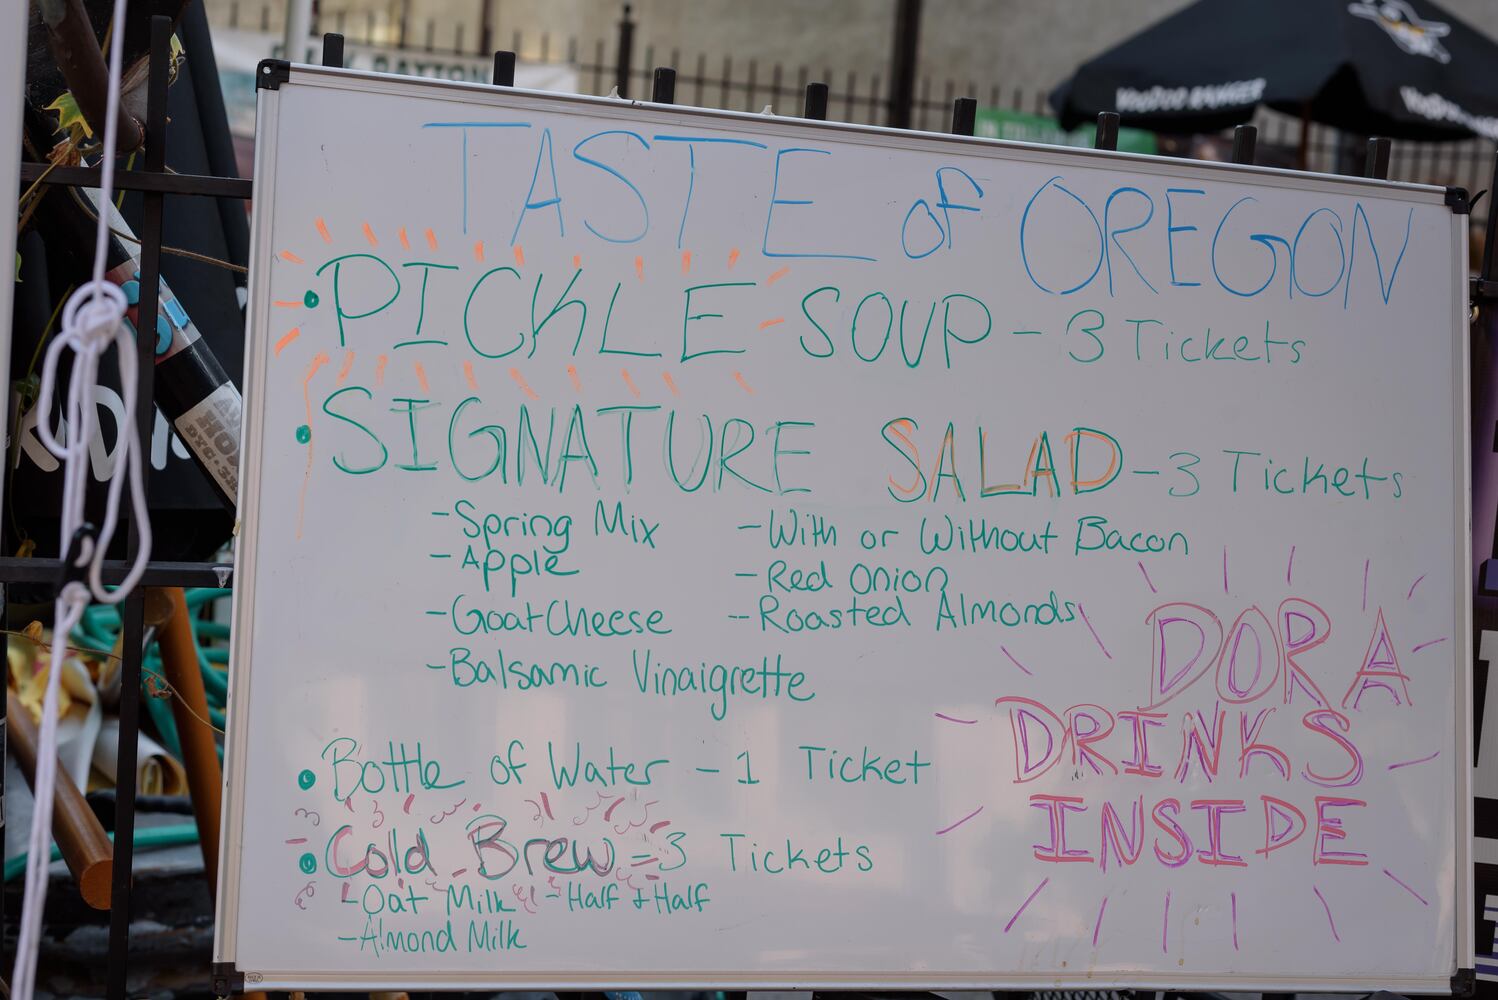 TASTE of OREGON
• PICKLE SOUP - 3 Tickets
• SIGNATURE SALAD - 3 Tickets
- Spring Mix
- Apple
- Goat Cheese
- Balsamic Vinaigrette
- With or Without Bacon
- Red Onion
- Roasted Almonds
DORA
DRINKS
INSIDE
• Bottle of Water - 1 Ticket
• Cold Brew - 3 Tickets
- Oat Milk - Half & Half
- Almond Milk
VOODOO RANGER